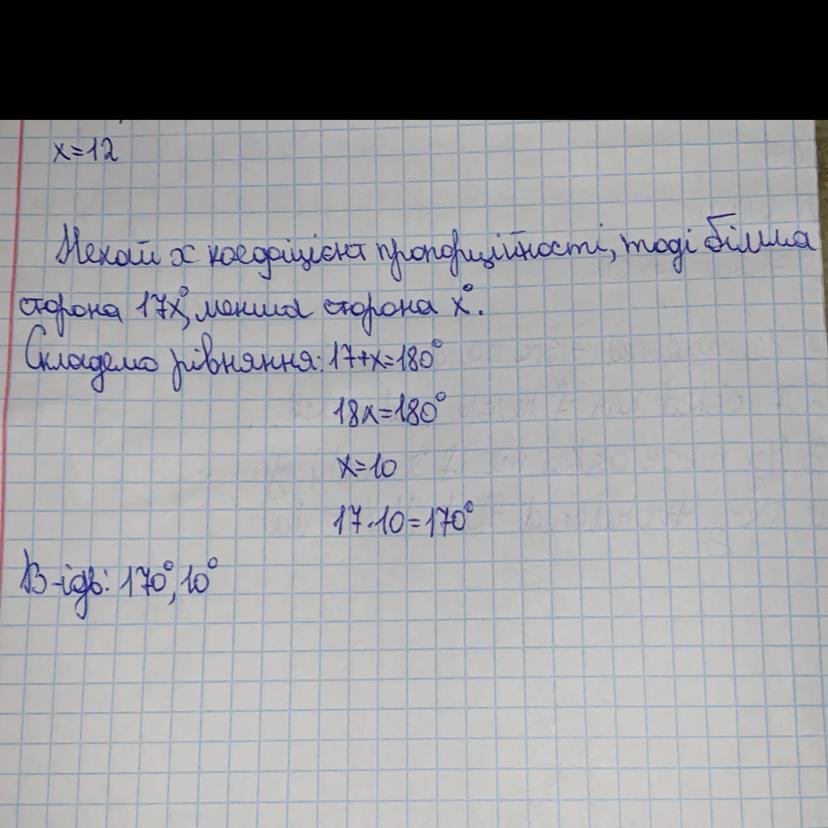 x=12
Нехай x коефіцієнт пропорційності, тоді більша
сторона 17x°, менша сторона x°.
Складемо рівняння: 17+x=180°
18x=180°
x=10
17·10=170°
В-ідь: 170°, 10°